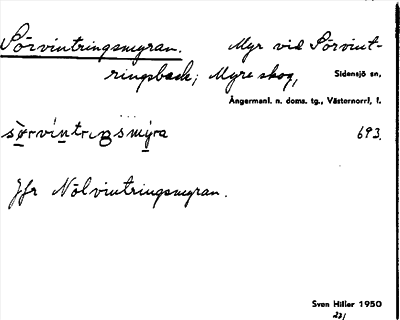 Sörvintringsmyran. Myr vid Sörvint-
ringsback; Myre skog, Sidensjö sn,
Ångermanl. n. doms. tg., Västernorrl, l.
693.
Jfr Nolvintringsmyran.
Sven Hiller 1950